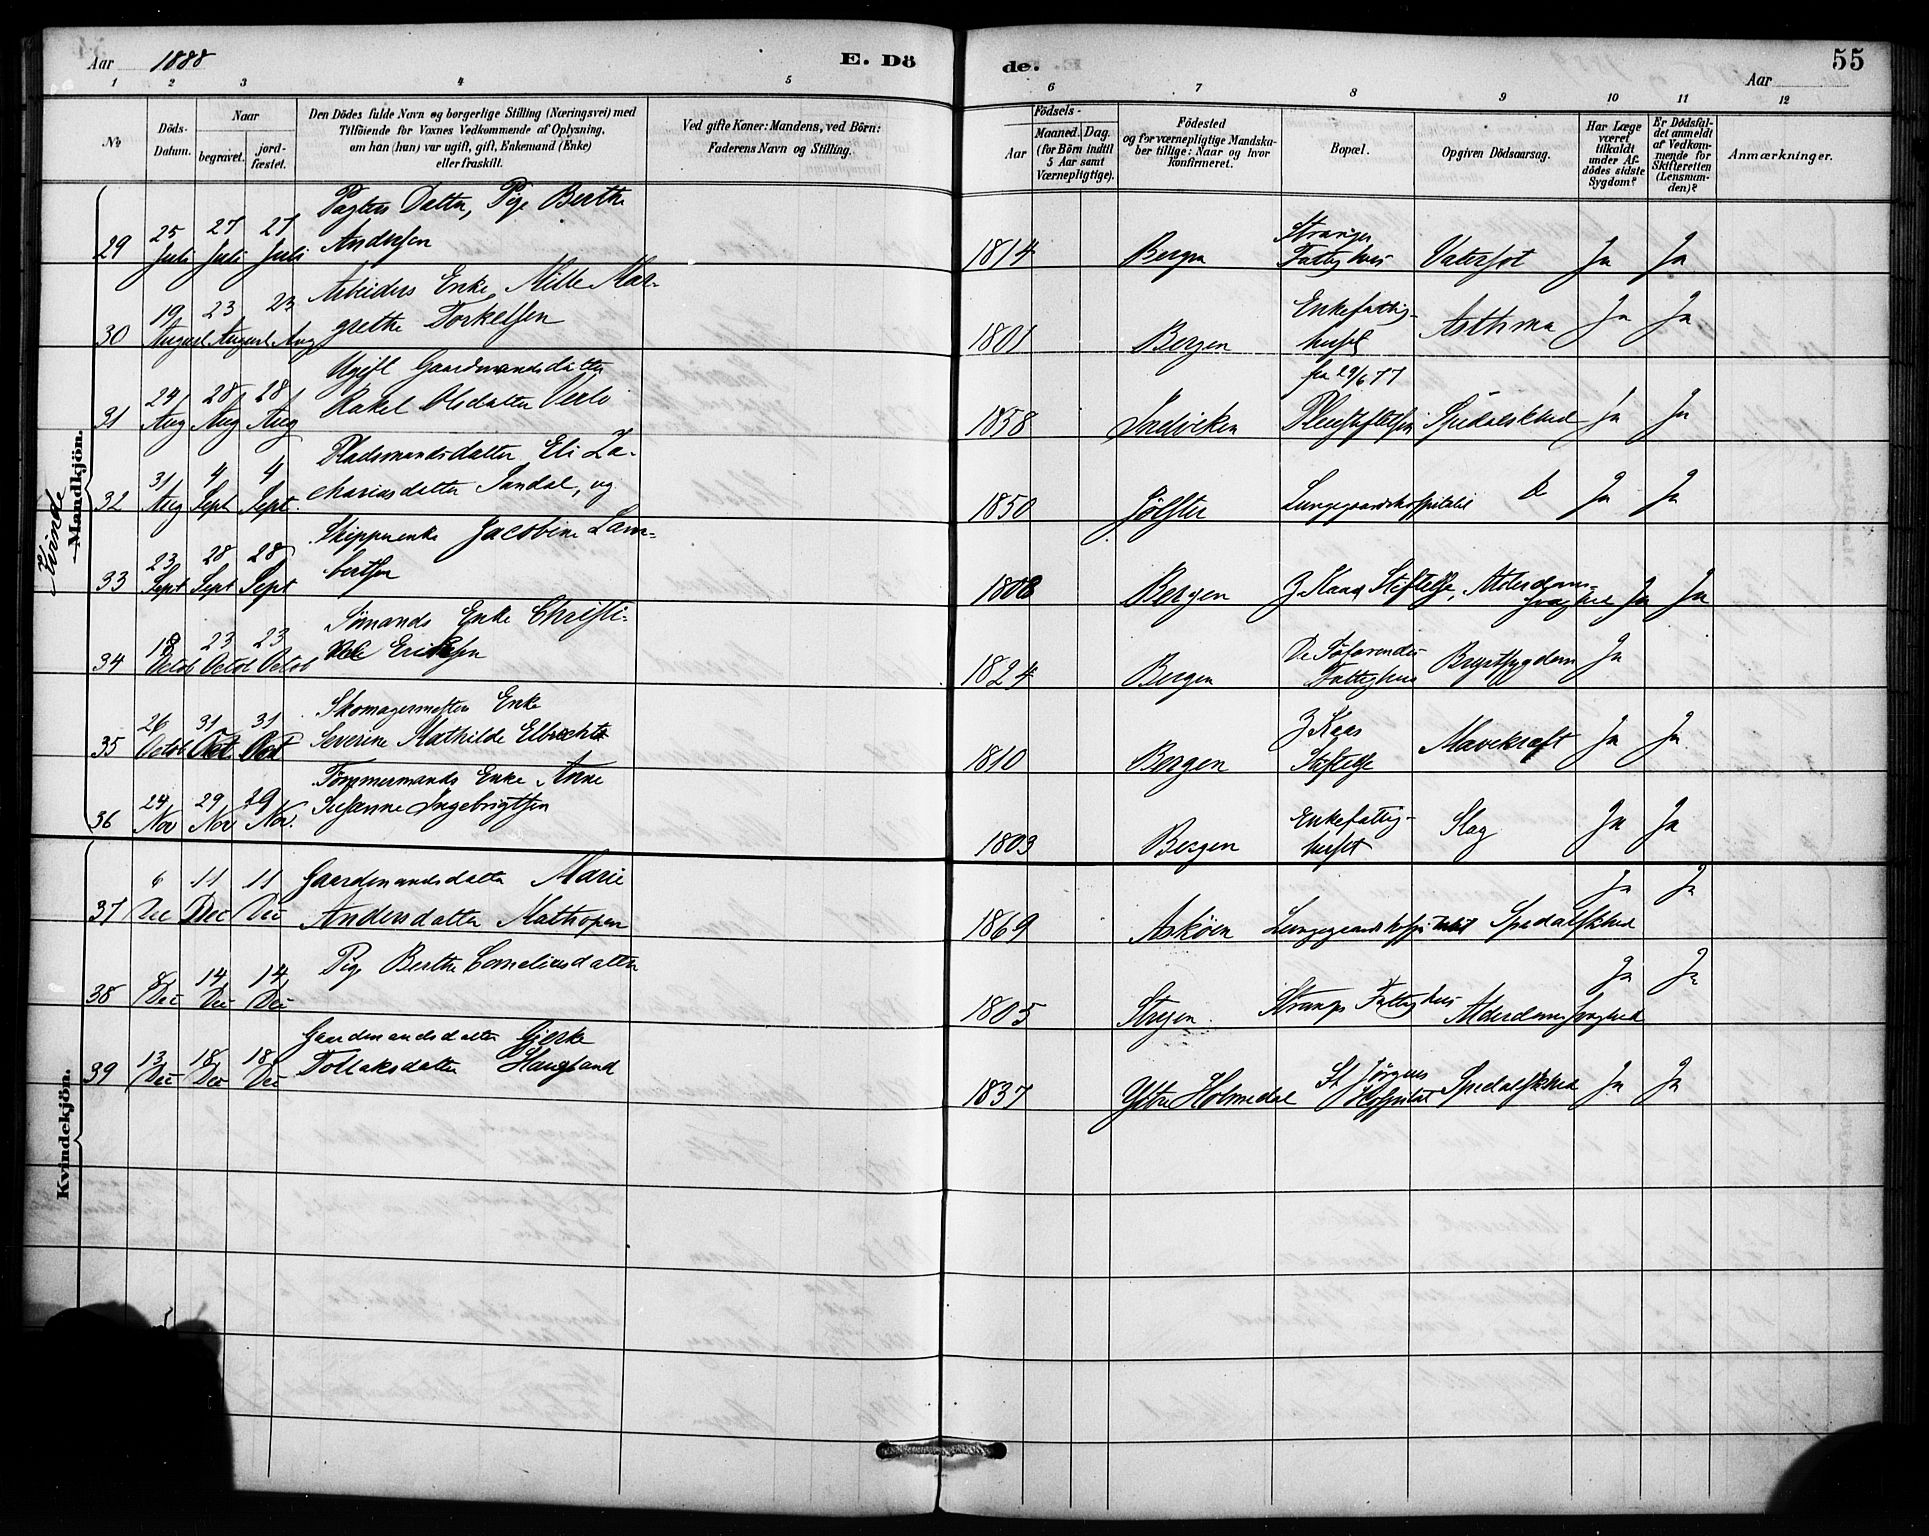 Aar 1888
E. Dö
de.
Aar
55
1 2 3 4 5 6 7 8 9 10 11 12
No
Döds-
Datum.
Naar
begravet.
jord-
fæstet.
Den Dödes fulde Navn og borgerlige Stilling (Næringsvei) med
Tilföiende for Voxnes Vedkommende af Oplysning,
om han (hun) var ugift, gift, Enkemand (Enke)
eller fraskilt.
Ved gifte Koner: Mandens, ved Börn:
Faderens Navn og Stilling.
Födsels-
Aar
Maaned. Dag.
(for Börn indtil
5 Aar samt
Værnepligtige).
Födested
og for værnepligtige Mandska-
ber tillige: Naar og hvor
konfirmeret.
Bopæl.
Opgiven Dödsaarsag.
Har Læge
været
tilkaldt
under Af-
dödes sidste
Sygdom?
Er Dödsfal-
det anmeldt
af Vedkom-
mende for
Skifteretten
(Lensman-
den)?
Anmærkninger.
Kvinde
Mandkjön.
Kvindekjön.
29 25 Juli 27 Juli 27 Juli Datter, Pige Berthe
Andersen
1814 Bergen Stranges
Fattighus Vatersot Ja Ja
30 19 August 23 August 23 Aug Arbeiders Enke Mille Mar-
grethe Torkelsen
1801 Bergen Enkefattig-
huset Asthma Ja Ja
31 24 Aug 28 Aug 28 Aug Ugift Gaardmandsdatter
Rakel Olsdatter
1858 Indviken fra 29/6 77
Pleiestiftelsen Spedalskhed Ja Ja
32 31 Aug 4 Sept 4 Sept. Pladsmandsdatter Eli Za-
chariasdatter Sandal, ug
1850 Jölster Lungegaardshospitalet Do Ja Ja
33 23 Sept 28 Sept 28 Sept Skipperenke Jacobine Lam-
bertsen
1808 Bergen Z Kaas Stiftelse, Alderdoms-
svaghed Ja Ja
34 18 Octob 23 Octob 23 Octob Sömands Enke Christi-
Eriksen
1824 Bergen De Söfarendes
Fattighus Brystsygdom Ja
35 26 Octob 31 Oct. 31 Oct Skomagermester Enke
Severine Mathilde Elbrechts
1810 Bergen Z Kaas
Stiftelse Mavekræft Ja Ja
36 24 Nov 29 Nov 29 Nov. Tømmermands Enke Anne
Susanne Ingebrigtsen
1803 Bergen Enkefattig-
huset Slag Ja Ja
37 6 Dec 11 Dec 11 Dec Gaardmandsdatter Marie
Andersdatter Mathopen
1869 Asköen Lungegaardshospitalet Spedalskhed Ja Ja
38 8 Dec 14 Dec 14 Dec Pige Berthe Corneliusdatter
1805 Stranges Fattighus Alderdomssvaghed Ja Ja
39 13 Dec 18 Dec 18 Dec Gaardmandsdatter
Tollaksdatter Haugland
1837 Yttre Holmedal St Jörgens
Hospital Spedalskhed Ja Ja